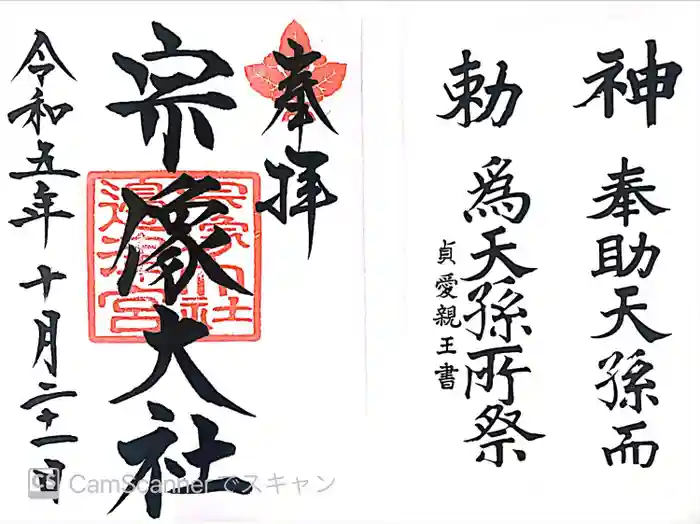 神
奉助天孫而
勅
為天孫所祭
貞愛親王書
奉拝
宗像大社
宗像大社
邊津宮
令和五年十月二十一日
CS CamScannerでスキャン